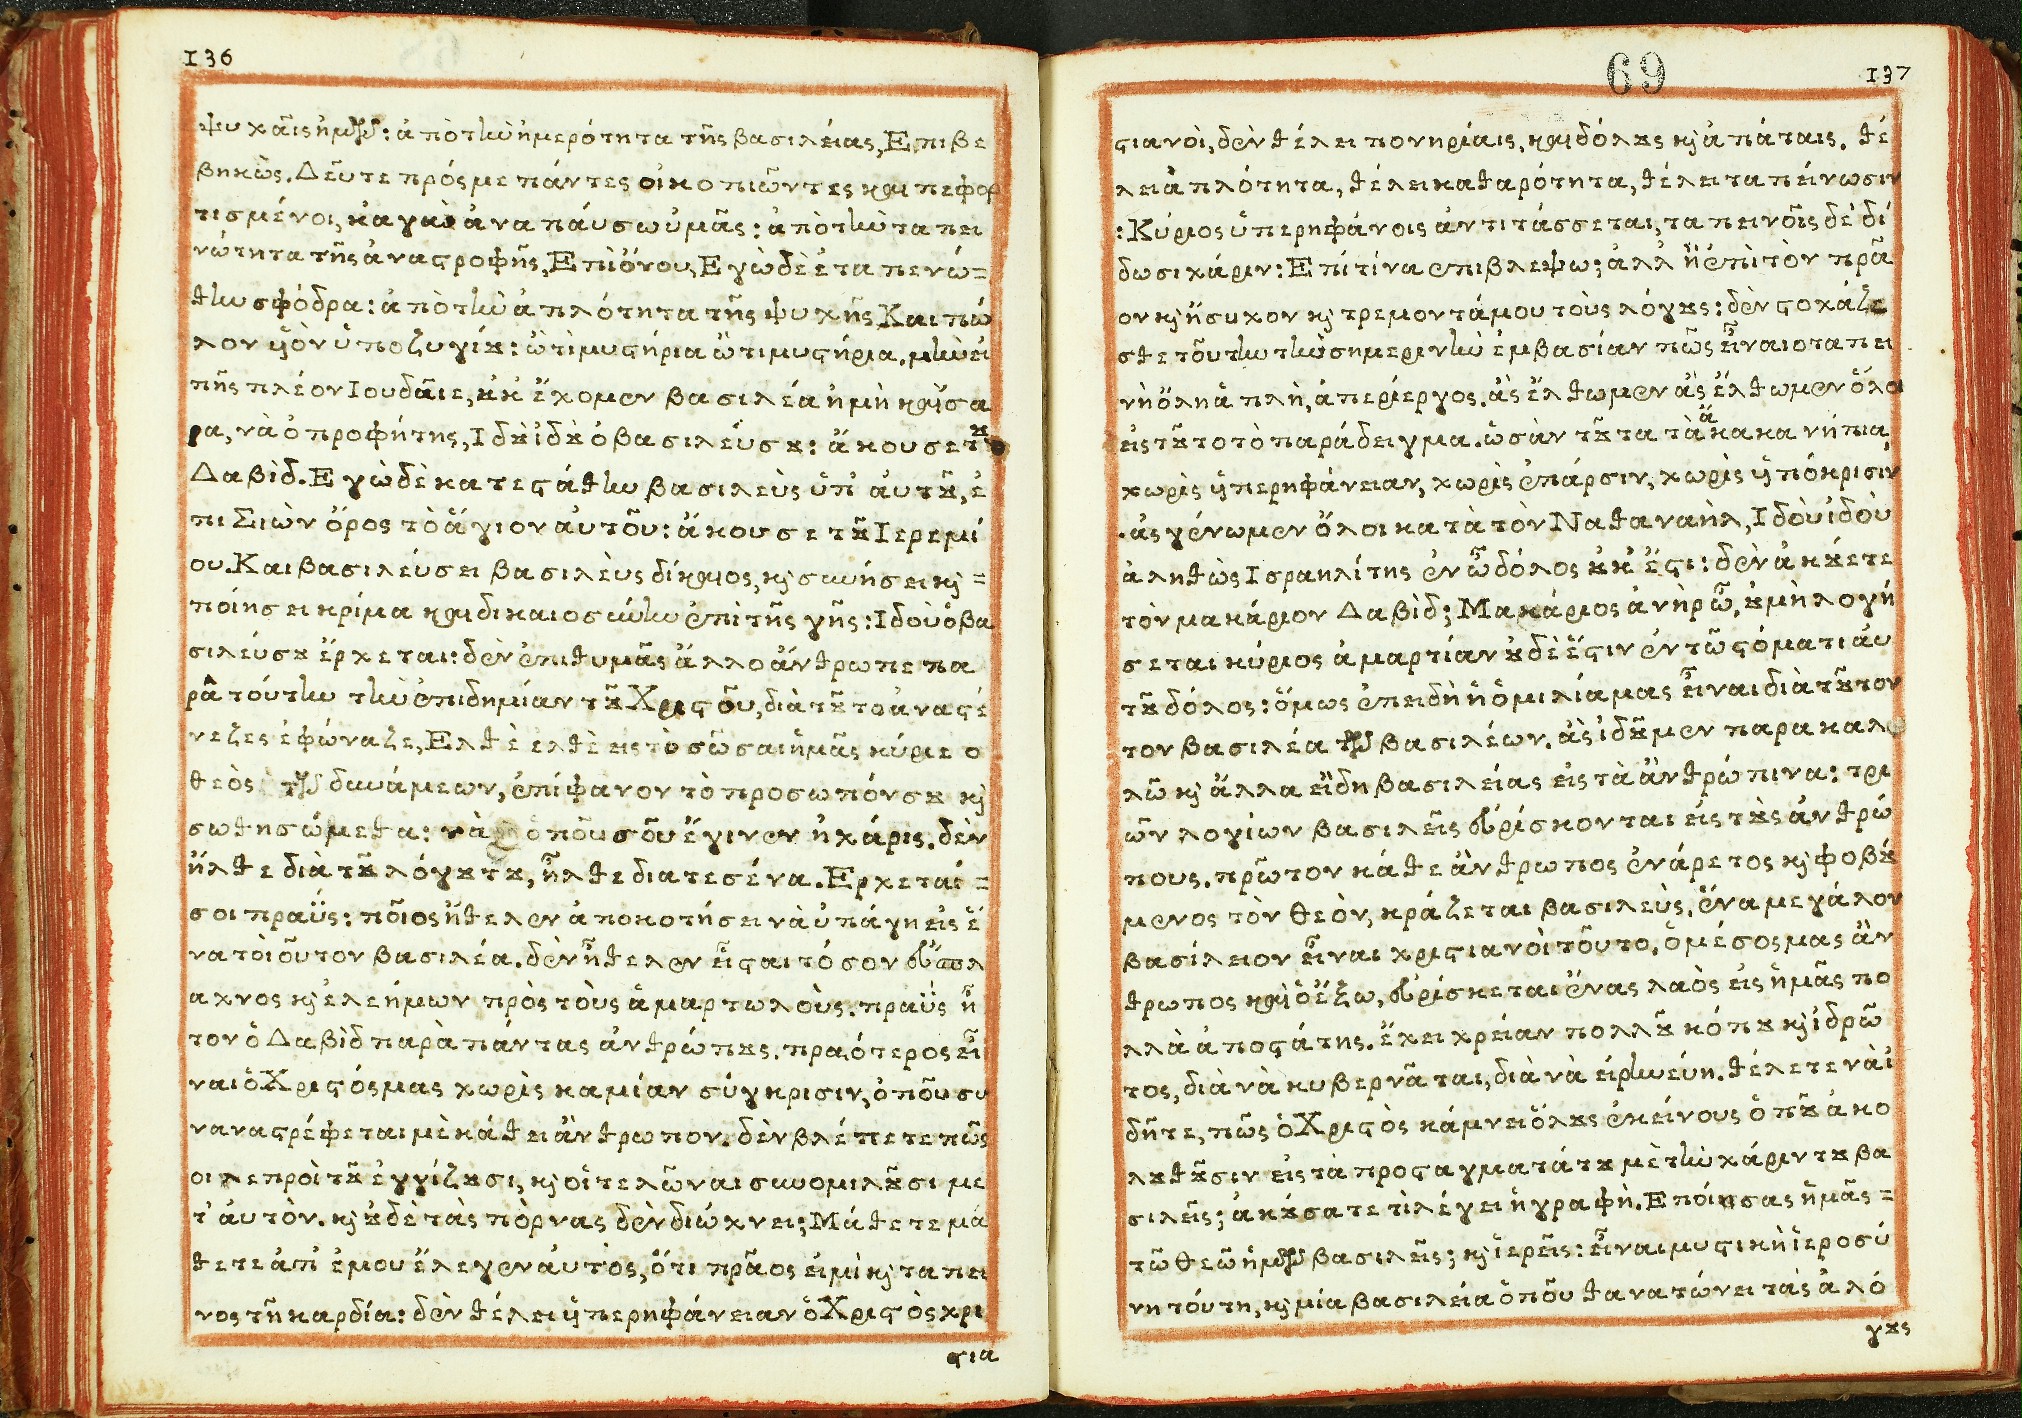 136
ψυχαῖς ἡμῶν: ἀπὸ τὴν ἡμερότητα τῆς βασιλείας, Επιβε
βηκὼς. Δεῦτε πρός με πάντες οἱ κοπιῶντες καὶ πεφορ
τισμένοι, κἀγὼ ἀναπάυσω ὑμᾶς: ἀπὸ τὴν ταπει
νώτητα τῆς ἀναςροφῆς, Επὶ ὄνου, Εγὼ δὲ ἐταπενώ=
θην σφόδρα: ἀπὸ τὴν ἁπλότητα τῆς ψυχῆς Και πώ
λον ὑὸν ὑποζυγίȣ: ὦ τὶ μυςήρια ὦ τι μυςήρια. μὴν εἰ
πῆς πλέον Ιουδαῖε, ȣκ ἔχομεν βασιλέα ἠμὴ καίσα
ρα, νὰ ὁ προφήτης, Ιδȣ ἰδȣ ὁ βασιλεύσȣ: ἄκουσε τȣ
Δαβὶδ. Εγὼ δὲ κατεςάθην βασιλεὺς ὑπ' ἀυτȣ, ἐ
πι Σιὼν ὄρος τὸ ἅγιον ἀυτοῦ: ἄκουσε τȣ Ιερεμί
ου. Και βασιλέυσει βασιλεὺς δίκαιος, κὶ συνήσει κὶ =
ποίησει κρίμα καὶ δικαιοσύνην ἐπὶ τῆς γῆς: Ιδοὺ ὁ βα
σιλεύσȣ ἔρχεται: δὲν ἐπιθυμᾶς ἄλλο ἄνθρωπε πα
ρὰ τούτην τὴν ἐπιδημίαν τȣ Χριςοῦ, διὰ τȣτο ἀναςέ
νεζες ἐφώναζε, Ελθὲ ἐλθὲ εις τὸ σῶσαι ἡμᾶς κύριε ο
θεὸς τῶν δυνάμεων, ἐπίφανον τὸ προσωπόνσȣ κὶ
σωθησώμεθα: νὰ ὁποῦ σοῦ ἔγινεν ἡ χάρις. δὲν
ἦλθε διὰ τȣ λόγȣτȣ, ἦλθε διατεσένα. Ερχεταί =
σοι πραΰς: ποῖος ἤθελεν ἀποκοτήσει νὰ ὑπάγη εἰς ἕ
να τὸιοῦτον βασιλέα. δὲν ἤθελεν εἶςαι τόσον ἔυσπλ
αχνος κὶ ἐλεήμων πρὸς τοὺς ἁμαρτωλοὺς. πραΰς ἦ
τον ὁ Δαβὶδ παρὰ πάντας ἀνθρώπȣς. πραότερος εἶ
ναι ὁ Χριςόςμας χωρὶς καμίαν σύγκρισιν, ὁποῦ συ
νανаςρέφεται μὲ κάθει ἄνθρωπον. δὲν βλέπετε πῶς
οι λεπροὶ τȣ ἐγγίζȣσι, κὶ οἱ τελῶναι συνομιλȣσι με
τ' ἀυτὸν. κὶ ȣδὲ τὰς πόρνας δὲν διώχνει; Μάθετε μά
θετε ἀπ' ἐμου ἔλεγεν ἀυτὸς, ὅτι πρᾶος εἰμὶ κὶ ταπει
νος τῆ καρδία: δὲν θέλει ὑπερηφάνειαν ὁ Χριςὸς χρι
ςια
69
137
ςιανοὶ, δὲν θέλει πονηρίαις, καὶ δόλȣς κὶ ἀπάταις. θέ
λει ἁπλότητα, θέλει καθαρότητα, θέλει ταπείνωσιν
: Κύριος ὑπερηφάνοις ἀντιτάσσεται, ταπεινοῖς δὲ δί
δωσι χάριν: Επὶ τίνα ἐπιβλεψω; ἀλλ' ἢ ἐπὶ τὸν πρᾶ
ον κὶ ἥσυχον κὶ τρεμοντάμου τοὺς λόγȣς: δὲν ςοκάζε
σθε τοῦτην τὴν σημερινὴν ἐμβασίαν πῶς εἶναι ο ταπει
νὴ ὅλη ἁπλὴ, ἀπερίεργος. ἂς ἔλθωμεν ἂς ἔλθωμεν ὅλοι
εἰς τȣτο τὸ παράδειγμα. ὡσὰν τȣτα τὰ ἄκακα νήπια
χωρὶς ὑπερηφάνειαν, χωρὶς ἐπάρσιν, χωρὶς ὑπόκρισιν
. ἀς γένωμεν ὅλοι κατὰ τὸν Ναθαναὴλ, Ιδοὺ ἰδοὺ
ἀληθὼς Ισραηλίτης ἐν ὧ δόλος ȣκ ἔςι: δὲν ἀκȣετε
τὸν μακάριον Δαβὶδ; Μακάριος ἀνὴρ ὧ, ȣ μὴ λογή
σεται κύριος ἁμαρτίαν ȣδὲ ἔςιν ἐν τῶ ςόματι ἀυ
τȣ δόλος: ὅμως ἐπειδὴ ἡ ὁμιλίαμας εἶναι διὰ τȣτον
τον βασιλέα τῶν βασιλέων. ἀς ἰδȣμεν παρακαλ
λῶ κὶ ἄλλα εἴδη βασιλείας εἰς τὰ ἀνθρώπινα: τρι
ῶν λογίων βασιλεῖς ἐυρίσκονται εἰς τȣς ἀνθρώ
πους. πρῶτον κάθε ἄνθρωπος ἐνάρετος κὶ φοβȣ
μενος τὸν θεὸν, κράζεται βασιλεὺς, ἕνα μεγάλον
βασίλειον εἶναι χριςιανοὶ τοῦτο, ὁ μέσοςμας ἄν
θρωπος καὶ ὁ ἔξω, ἐυρίσκεται ἕνας λαὸς εἰς ἡμᾶς πο
λλὰ ἀποςάτης. ἔχει χρείαν πολλȣ κόπȣ κὶ ἱδρῶ
τος, διὰ νὰ κυβερνᾶται, διὰ νὰ εἰρηνεύη. θέλετε νὰ ἰ
δῆτε, πῶς ὁ Χριςὸς κάμνει ὅλȣς ἐκείνους ὁπȣ ἀκο
λȣθȣσιν εἰς τὰ προςαγματάτȣ μὲ τὴν χάριντȣ βα
σιλεῖς; ἀκȣσατε τὶ λέγει ἡ γραφὴ. Εποίησας ἡμᾶς =
τῶ θεῶ ἡμῶν βασιλεῖς; κὶ ἱερεῖς: εἶναι μυςικὴ ἱεροσύ
νη τούτη, κὶ μία βασιλεία ὁποῦ θανατώνει τὰς ἀλό
γȣς